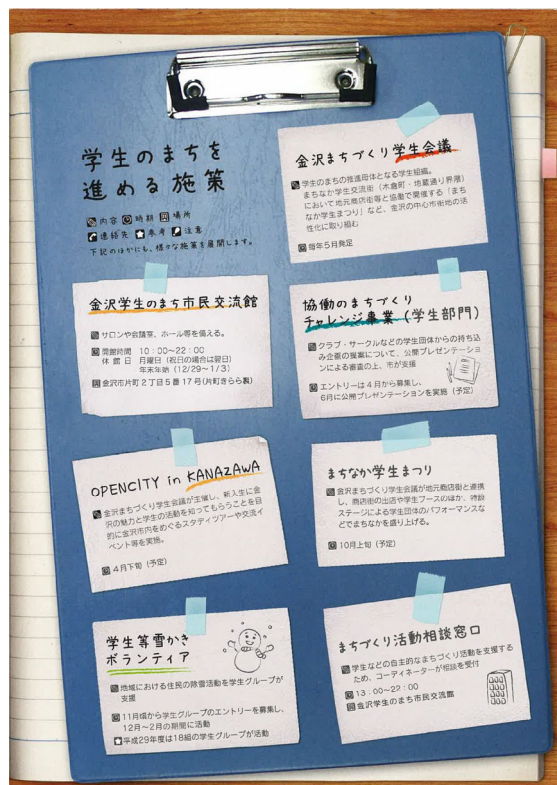 学生のまちを
進める施策
内容 時期 場所
連絡先 参考 注意
下記のほかにも、様々な施策を展開します。
金沢まちづくり学生会議
学生のまちの推進母体となる学生組織。
まちなか学生交流街（木倉町・地蔵通り界隈）
において地元商店街等と協働で開催する「まち
なか学生まつり」など、金沢の中心市街地の活
性化に取り組む
毎年5月発足
金沢学生のまち市民交流館
サロンや会議室、ホール等を備える。
開館時間 10：00〜22：00
休館日 月曜日（祝日の場合は翌日）
年末年始（12/29〜1/3）
金沢市片町2丁目5番17号(片町きらら裏)
協働のまちづくり
チャレンジ事業（学生部門）
クラブ・サークルなどの学生団体からの持ち込
み企画の提案について、公開プレゼンテーショ
ンによる審査の上、市が支援
エントリーは4月から募集し、
6月に公開プレゼンテーションを実施（予定）
OPENCITY in KANAZAWA
金沢まちづくり学生会議が主催し、新入生に金
沢の魅力と学生の活動を知ってもらうことを目
的に金沢市内をめぐるスタディツアーや交流イ
ベント等を実施。
4月下旬（予定）
まちなか学生まつり
金沢まちづくり学生会議が地元商店街と連携
し、商店街の出店や学生ブースのほか、特設
ステージによる学生団体のパフォーマンスな
どでまちなかを盛り上げる。
10月上旬（予定）
学生等雪かき
ボランティア
地域における住民の除雪活動を学生グループが
支援
11月頃から学生グループのエントリーを募集し、
12月〜2月の期間に活動
平成29年度は18組の学生グループが活動
まちづくり活動相談窓口
学生などの自主的なまちづくり活動を支援する
ため、コーディネーターが相談を受付
13：00〜22：00
金沢学生のまち市民交流館